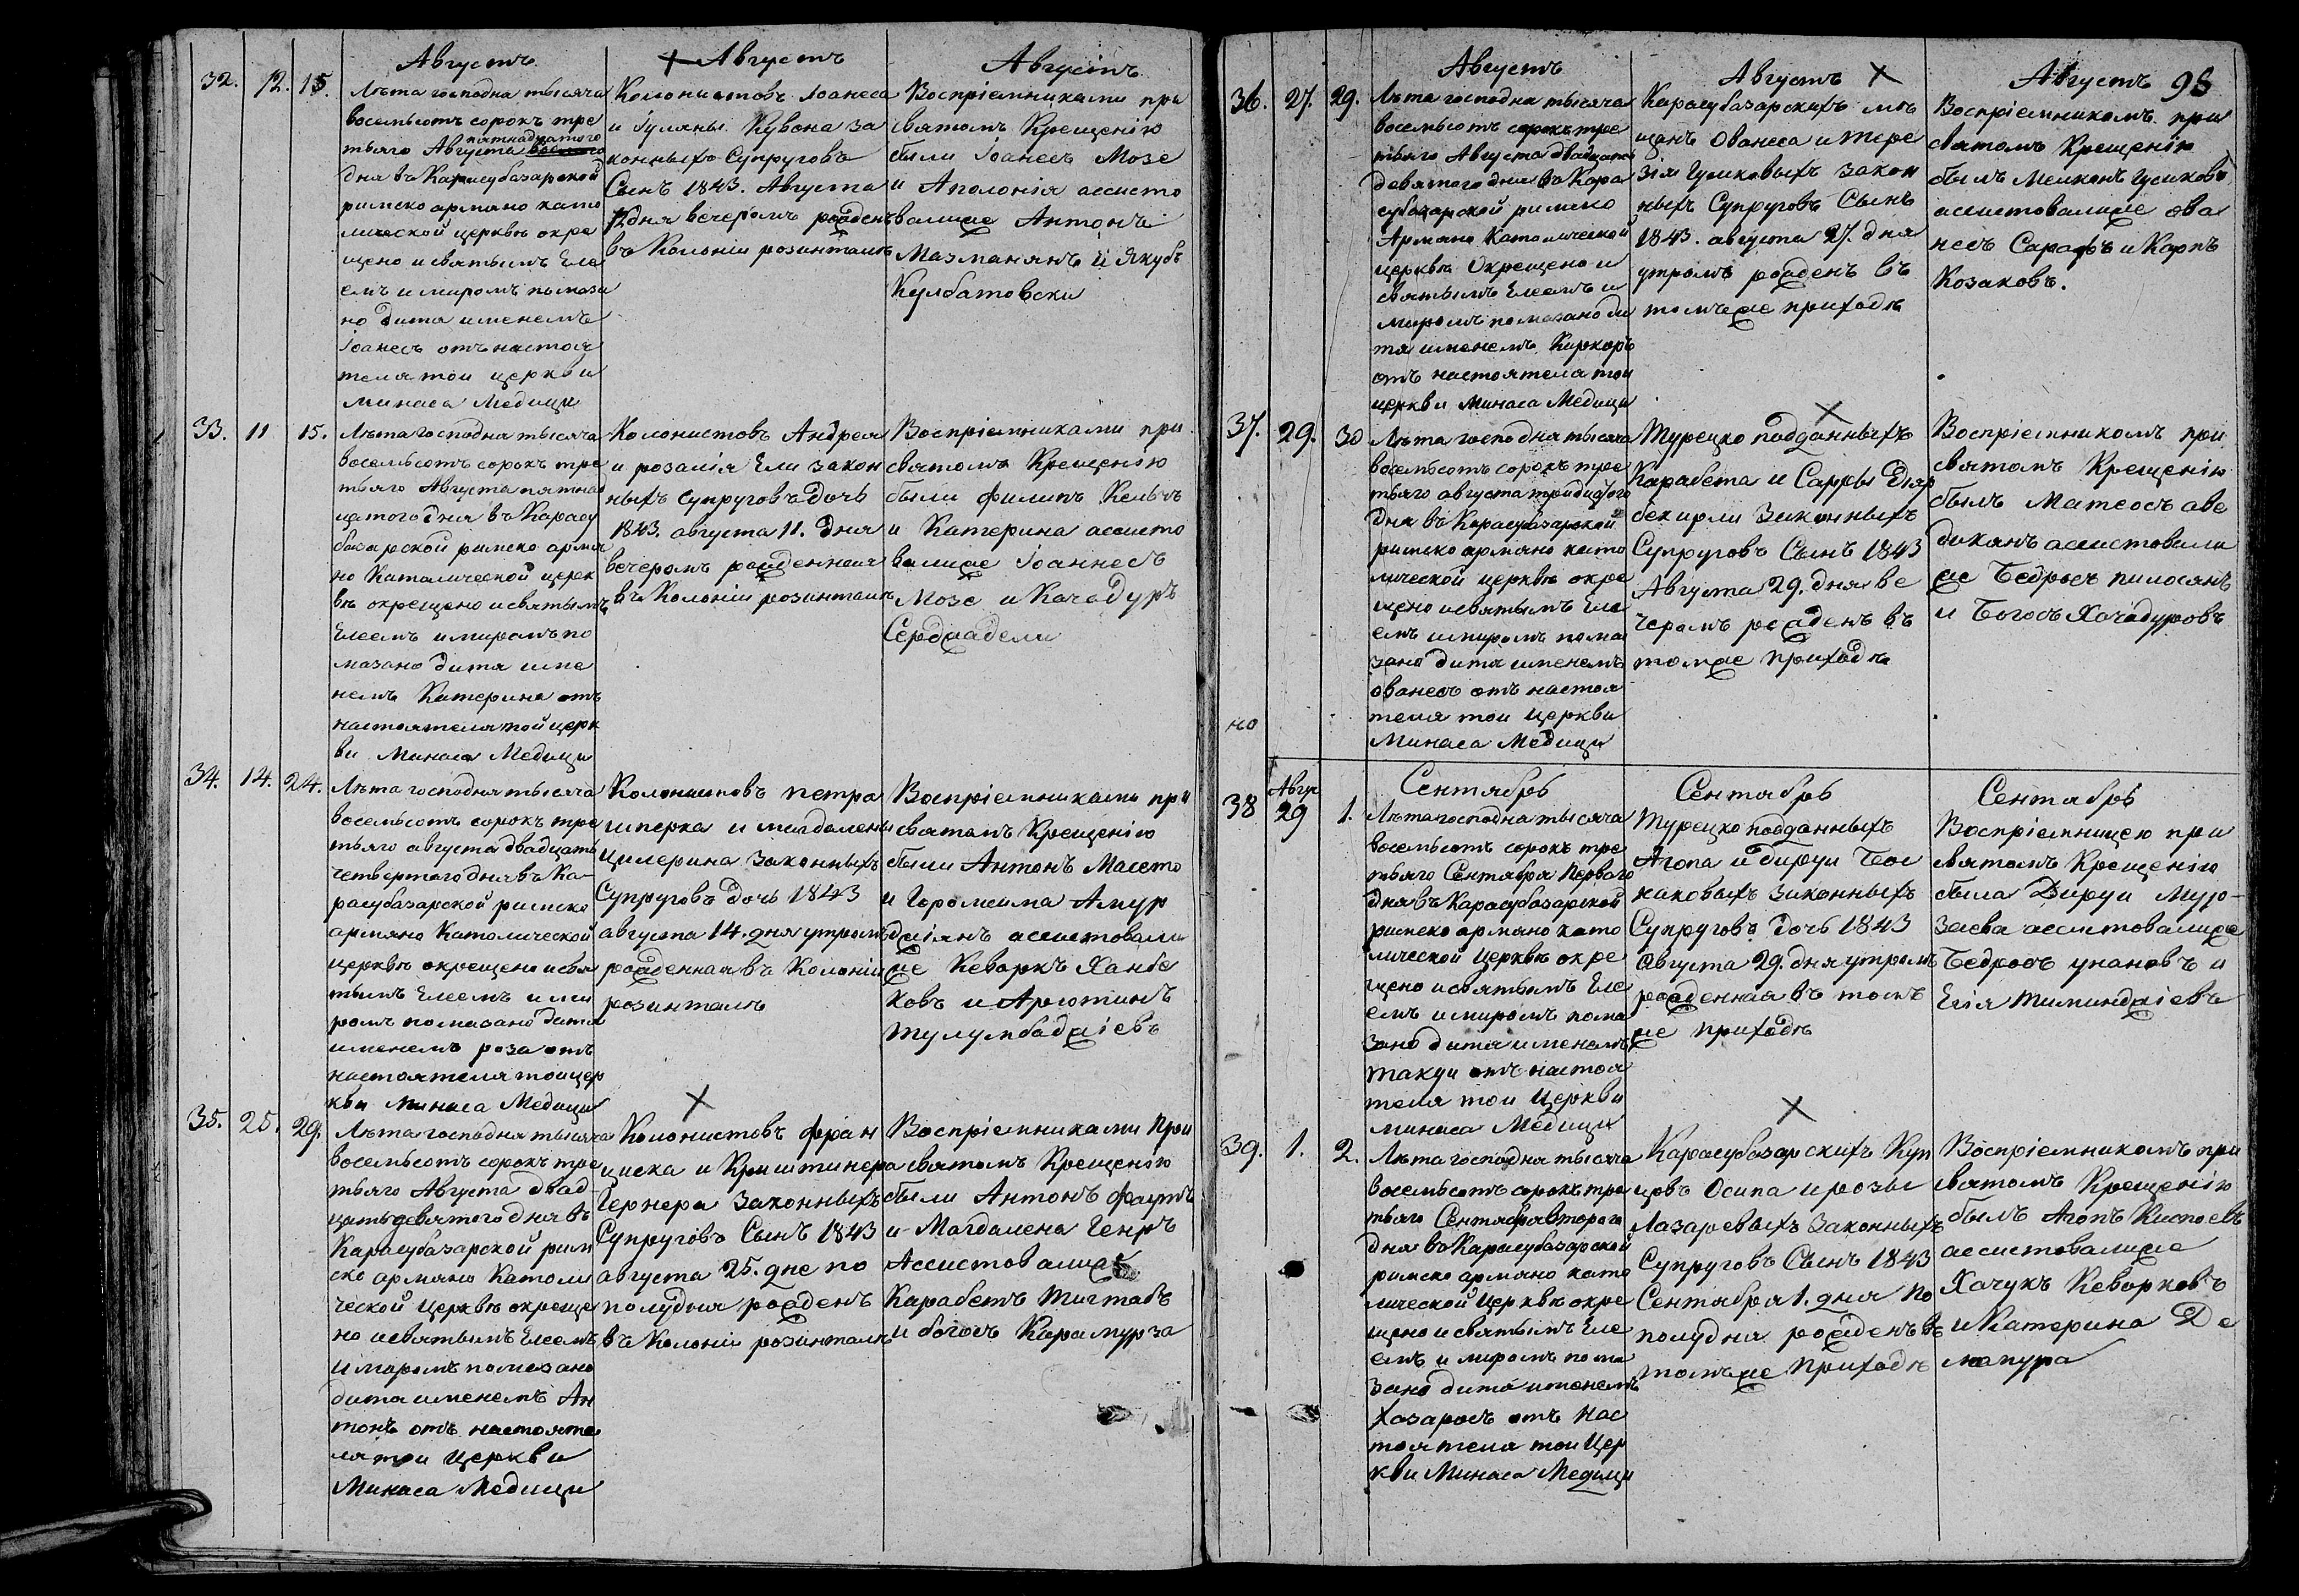 Августъ
32. 12. 15.
Лѣта господна тысяча
восемьсотъ сорокъ тре
пятнадцатого
тьяго Августа
дня въ Карасубазарской
римско армяно като
лической церквѣ окре
щено и святымъ Еле
емъ и миромъ помаза
но дитя именемъ
Іоанесъ отъ настоя
теля тои церкви
Минаса Медици
Августъ
Колонистовъ Іоанеса
и Гуляны Кувона за
конныхъ Супруговъ
Сынъ 1843. Августа
12 дня вечеромъ рожденъ
въ Колоніи розинталь
Августъ
Воспріемниками при
святомъ Крещенію
были Іоанесъ Мозе
и Аполонія ассисто
валисе Антонъ
Мазманянъ и Якубъ
Кулбатовски
33. 11 15.
Лѣта господна тысяча
восемьсотъ сорокъ тре
тьяго Августа пятнад
цатого дня въ Карасу
базарской римско армя
но Католической церк
вѣ окрещено и святымъ
Елеемъ и миромъ по
мазано дитя име
немъ Катерина отъ
настоятеля той церк
ви Минаса Медици
Колонистовъ Андрея
и розалія Ели закон
ныхъ супруговъ Дочь
1843. августа 11. дня
вечеромъ рожденная
въ Колоніи розинталь
Воспріемниками при
святомъ Крещенію
были филипъ Кельчъ
и Катерина ассисто
валисе Іоаннесъ
Мозе и Качадуръ
Серджадели
34. 14. 24.
Лѣта господня тысяча
восемьсотъ сорокъ тре
тьяго августа двадцать
четвертого дня въ Ка-
расубазарской римско
армяно Католической
церквѣ окрещено и свя
тымъ Елеемъ и ми
ромъ помазано дитя
именемъ роза отъ
настоятеля тои цер
кви Минаса Медици
Колонистовъ петра
шперка и магдалены
цилерина законныхъ
Супруговъ дочь 1843
августа 14. дня утромъ
рожденная въ Колоніи
розинталь
Воспріемниками при
святомъ Крещенію
были Антонъ Масето
и Горомсима Амур
джіянъ ассистовали
же Кеворкъ Ханбе
ковъ и Арютинъ
Тулумбаджіевъ
35. 25. 29.
Лѣта господня тысяча
восемьсотъ сорокъ тре
тьяго Августа двад-
цать девятого дня въ
Карасубазарской рим
ско армяно Католи
ческой Церквѣ окреще
но и святымъ Елеемъ
и миромъ помазано
дитя именемъ Ан
тонъ отъ настояте
ля тои Церкви
Минаса Медици
Колонистовъ фран
циска и Криштинера
Гернера Законныхъ
Супруговъ Сынъ 1843
августа 25. дне по
полудня рожденъ
въ Колоніи розинталь
Воспріемниками При
святомъ Крещенію
были Антонъ фаутъ
и Магдалена Генръ
Ассистовалисе
Карабетъ Тигтабъ
и богосъ Карамурза
98
Августъ
36. 27. 29.
Лѣта господна тысяча
восемьсотъ сорокъ тре
тьяго Августа двадцать
девятого дня въ Кара
субазарской римско
Армяно Католической
церквѣ Окрещено и
святымъ Елеемъ и
миромъ помазано ди
тя именемъ Киркоръ
отъ настоятеля тои
церкви Минаса Медици
Августъ
Карасубазарскихъ мѣ
щанъ Ованеса и Тере
зія Гуликовыхъ закон
ныхъ Супруговъ Сынъ
1843. августа 27. дня
утромъ рожденъ въ
томъже приходѣ
Августъ
Воспріемникомъ при
святомъ Крещенію
былъ Мелконъ Гуликовъ
ассистовалисе ова
несъ Сарафъ и Карпъ
Козаковъ.
37. 29. 30
Лѣта господня тысяча
восемьсотъ сорокъ тре
тьяго августа тридцатого
дня въ Карасубазарской
римско армяно като
лической церквѣ окре
щено и святымъ Еле
емъ и миромъ пома
зано дитя именемъ
ованесъ отъ настоя
теля тои Церкви
Минаса Медици
Турецко подданныхъ
Карабета и Сарры Дияр
бекирли Законныхъ
Супруговъ Сынъ 1843
Августа 29. дня ве
черомъ рожденъ въ
томже приходѣ
Воспріемникомъ при
святомъ Крещенію
былъ Матеосъ аве
диканъ ассистовали
же Бедросъ пилосянъ
и Богосъ Хачадуровъ
но
Авгу
38 29 1.
Сентябрь
Лѣта господна тысяча
восемьсотъ сорокъ тре
тьяго Сентября Первого
дня въ Карасубазарской
римско армяно като
лической Церквѣ окре
щено и святымъ Еле
емъ и миромъ пома
зано дитя именемъ
Такуи отъ настоя
теля тои Церкви
Минаса Медици
Сентябрь
Турецко подданныхъ
Агопа и Дируи Бос
наковыхъ Законныхъ
Супруговъ дочь 1843
Августа 29. дня утромъ
рожденная въ томъ
же приходѣ
Сентябрь
Воспріемницею при
святомъ Крещенію
была Дируи Мур-
заева ассистовалисе
Бедросъ унановъ и
Елія Тиминджіевъ
39. 1. 2.
Лѣта господня тысяча
восемьсотъ сорокъ тре
тьяго Сентября второго
дня въ Карасубазарской
римско армяно като
лической Церквѣ окре
щено и святымъ Еле
емъ и миромъ пома
зано дитя именемъ
Хазаросъ отъ Нас
тоятеля тои Цер
кви Минаса Медици
Карасубазарскихъ Куп
цовъ Осипа и розы
Лазаревыхъ Законныхъ
Супруговъ Сынъ 1843
Сентября 1. дня по
полудня рожденъ въ
томъже приходѣ
Воспріемникомъ при
святомъ Крещенію
былъ Агопъ Киспоевъ
ассистовалисе
Хачукъ Кеворковъ
и Катерина Де
мапура